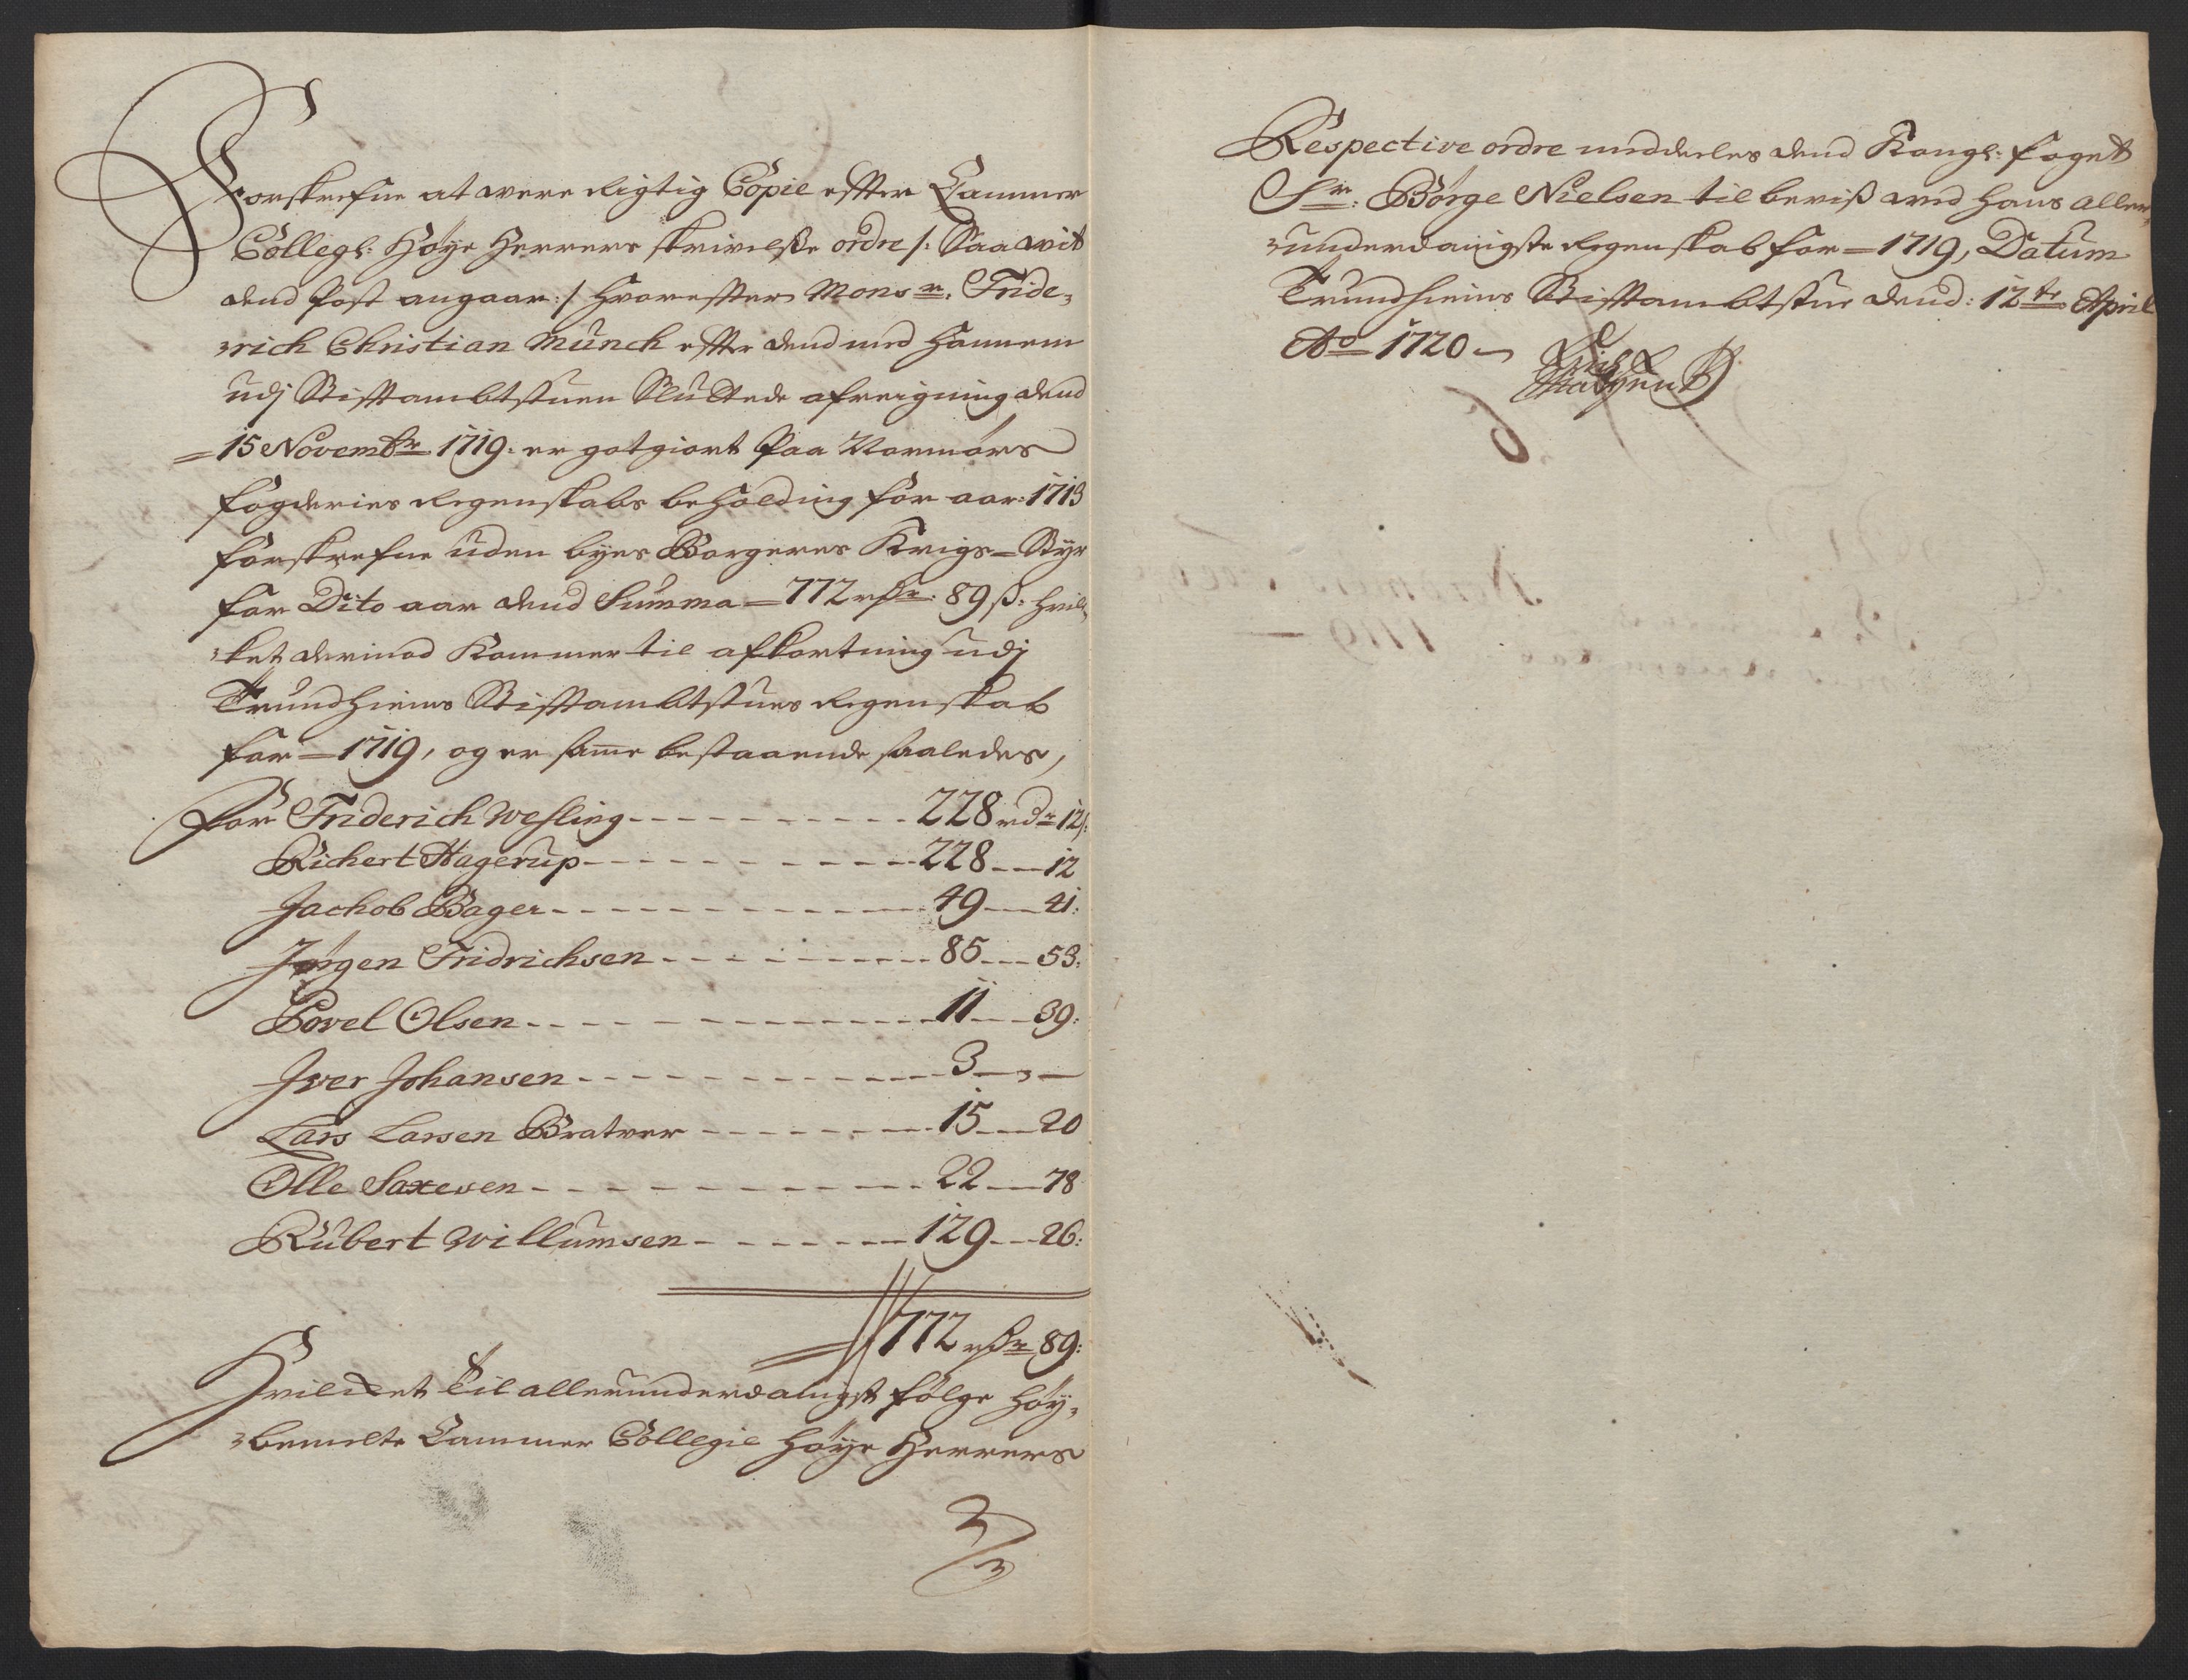 Forskrefne at were Rigtig Copie effter Cammer
Collegl: Høye Herrers skrivelsse ordre /: Saa wit
dend Post angaar :/ Hvoreffter Monsr. Fride,
rich Christian Münch effter dend med Hannem
udj Stifftambtstuen Sluttede afreigning dend
15 Novembr. 1719. er gotgiort Paa Normørs
fogderies Regenskabs beholding for aar 1713
forskrefne uden byes Borgeres Krigs=Styr
for Dito aar dend Summa = 772 rdr: 89 ß: hvil,
ket derimod Kommer til afkortning udj
Trundhiems Stifftambtstues Regenskab
for = 1719, og er same bestaaende saaledes,
For Friderich Wesling - - - 228 rdr 12 ß:
Richert Hagerup - - - 228 - - 12
Jachob Bager - - - 49 - - 41:
Jørgen Fridrichsen - - - 85 - - 53:
Povel Olsen - - - 11 - - 39:
Iver Johansen - - - 3 - „ -
Lars Larsen Bratver - - - 15 - - 20
Olle Saxesen - - - 22 - - 78
Rubert Willumsen - - - 129 - - 26:
772 rdr 89:
Hvilcket til allerunderdanigst følge høy,
bemelte Cammer Collegie høye Herrers
Respective ordre meddeeles dend Kongl: foget
Sr: Børge Nielsen til beviß ved hans aller,
underdanigste Regenskab for = 1719, Datum
Trundhiems Stifftambtstue dend: 12te April
Ao 1720